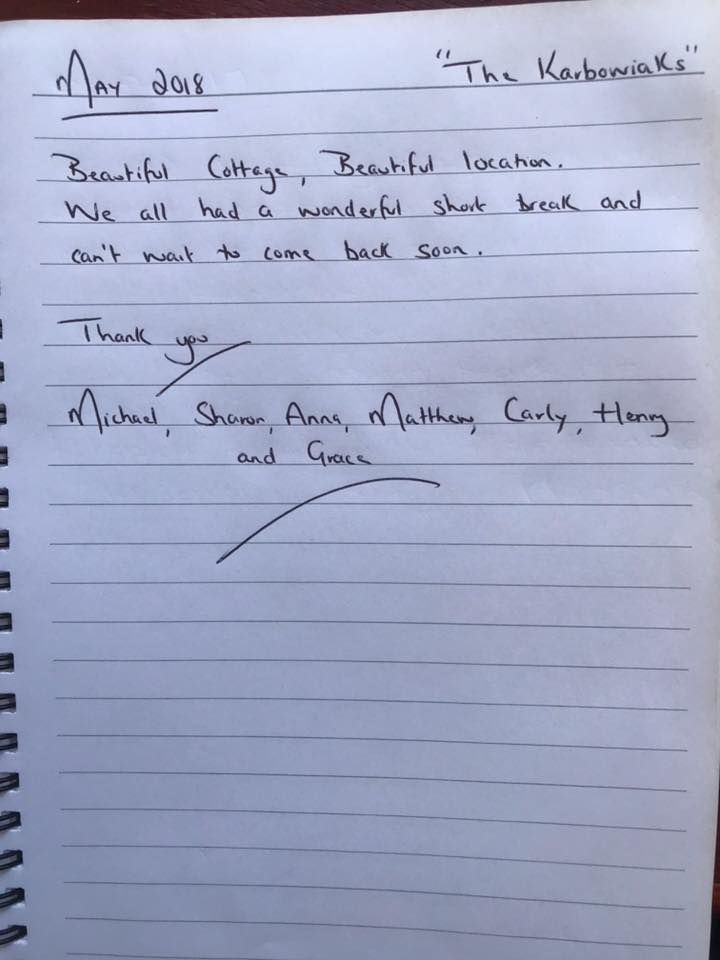 May 2018 "The Karbowiaks"
Beautiful Cottage, Beautiful location.
We all had a wonderful short break and
can't wait to come back soon.
Thank you
Michael, Sharon, Anna, Matthew, Carly, Henry
and Grace